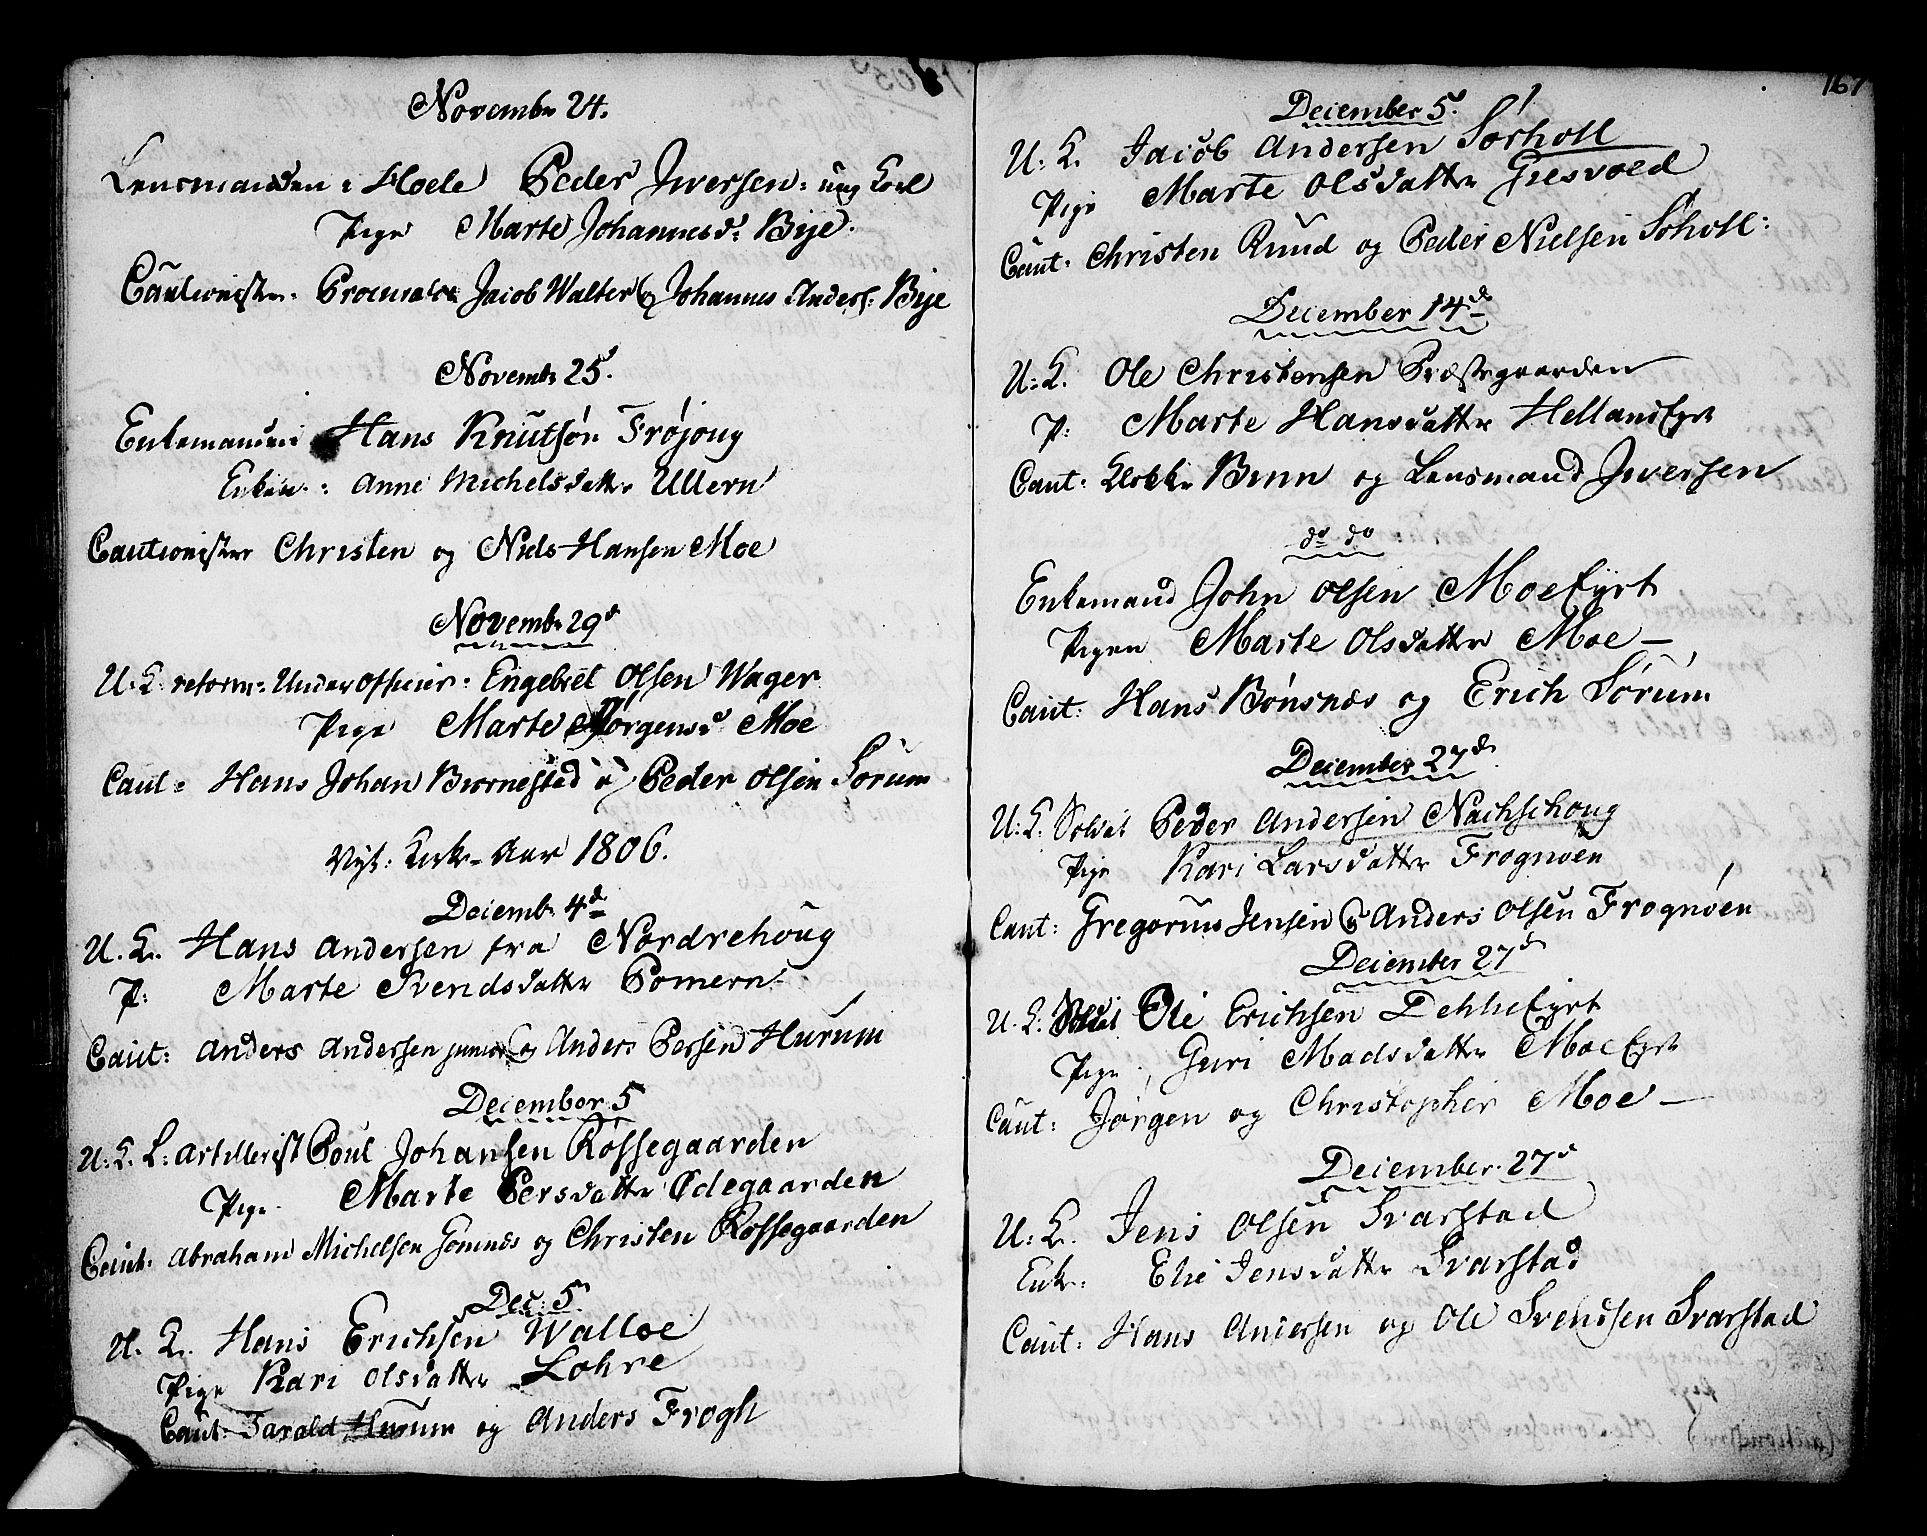 Novembr 24.
Lensmanden i Hoele Peder Iversen: ung Karl
Pige Marte Johannesd: Bye.
Cautionister: Procurator Jacob Walter og Johannes Anders: Bye
Novembr 25.
Enkemanden Hans Knutsøn Frøjoug
Enken: Anne Michelsdatter Ullern
Cautionister Christen og Niels Hansen Moe
Novembr 29d
U. K. reform: Under Officier: Engebret Olsen Wager
Pige Marte Jørgensd Moe
Caut: Hans Johan Biørnestad og Peder Olsen Sørum
Nyt: Kirke-Aar 1806.
Decemb: 4d
U. K. Hans Andersen fra Nordrehoug
P: Marte Svendsdatter Pomern
Caut: Anders Andersen junior og Anders Persen Hurum
December 5
U. K. L: Artillerist Poul Johansen Røssegaarden
Pige Marte Persdatter Ødegaarden
Caut: Abraham Michelsen Gomnes og Christen Røssegaarden
Dec: 5
U. K. Hans Erichsen Walløe
Pige Kari Olsdatter Lohre
Caut: Tarald Hurum og Anders Frogh
167
December 5.
U: K. Jacob Andersen Sørholl
Pige Marte Olsdatter Giesvold
Caut: Christen Rund og Peder Nielsen Søholl:
December 14d
U: K. Ole Christensen Præstegaarden
P: Marte Hansdatter Hellandseyet
Caut: Klokker Bunn og Lensmand Iversen
do do
Enkemand John Olsen Moe Eyet
Pigen Marte Olsdatter Moe —
Caut: Hans Bønsnæs og Erich Sørum
December 27d
U: K: Soldat Peder Andersen Nachschoug
Pige Kari Larsdatter Frognøen
Caut: Gregorius Jensen og Anders Olsen Frognøen
December 27d
U. K: Soldat Ole Erichsen Dehlie Eyet
Pige Guri Madsdatter Moe Eyet
Caut: Jørgen og Christopher Moe —
December 27d
U: K. Jens Olsen Svarstad
Enke: Elie Jensdatter Svarstad
Caut: Hans Andersen og Ole Svendsen Svarstad